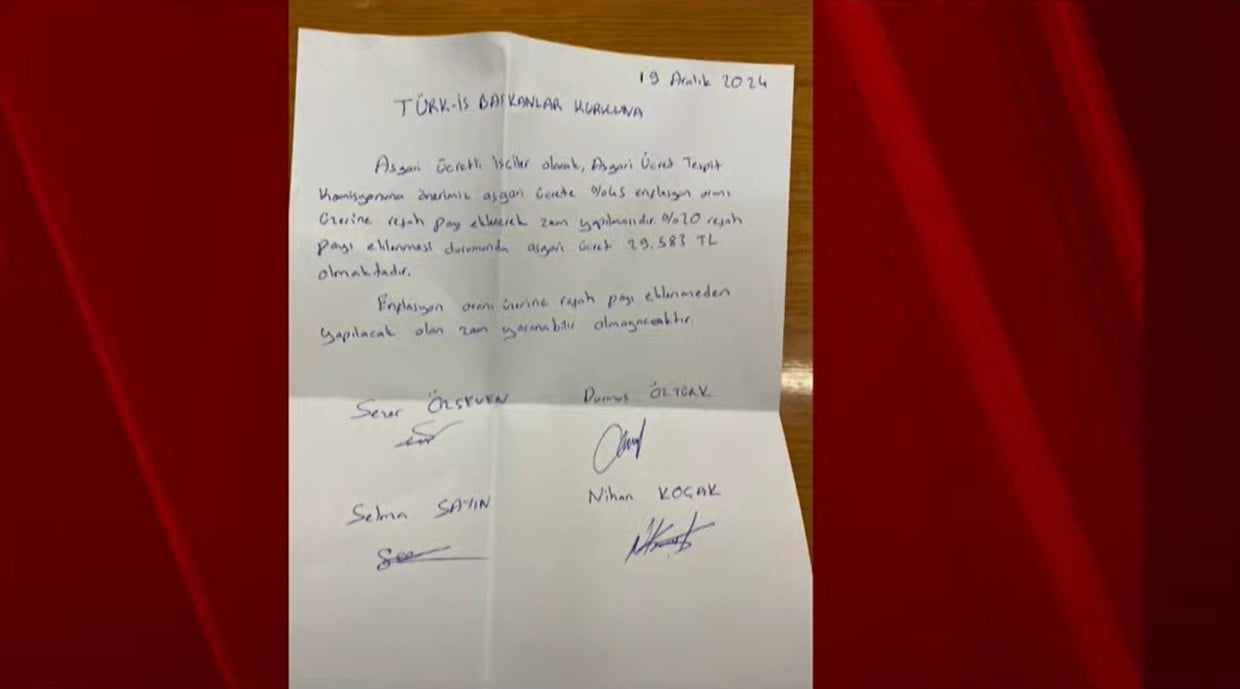 19 Aralık 2024
TÜRK-İŞ BAŞKANLAR KURULUNA
Asgari ücretli işçiler olarak, Asgari Ücret Tespit
Komisyonuna önerimiz asgari ücrete %45 enflasyon oranı
üzerine refah payı eklenerek zam yapılmalıdır. %20 refah
payı eklenmesi durumunda asgari ücret 29.583 TL
olmaktadır.
Enflasyon oranı üzerine refah payı eklenmeden
yapılacak olan zam yaşanabilir olmayacaktır.
Sezer ÖZSEVEN
Durmuş ÖZTÜRK
Selma SAYIN
Nihan KOÇAK